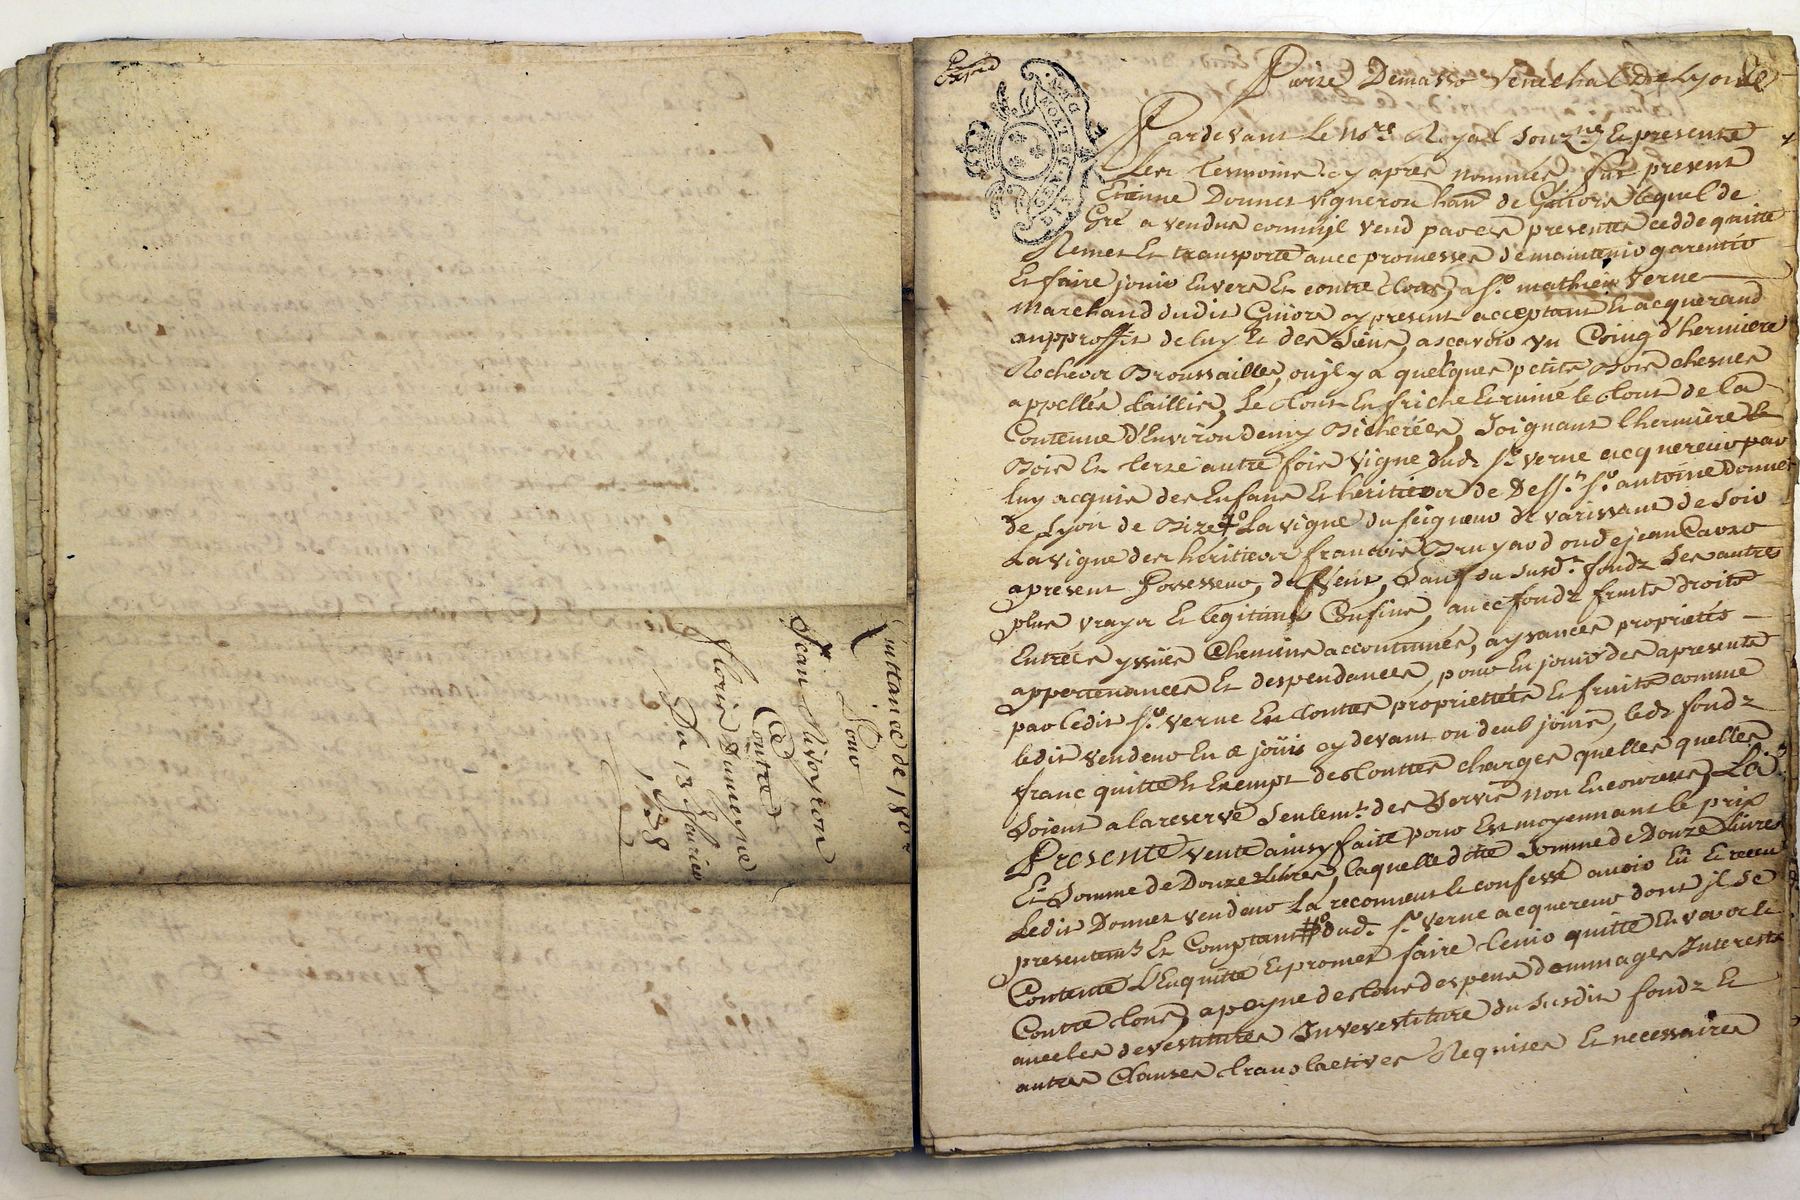 Quittance de 180#
Pour
Jean
Contre
Fleurie
Du 13
1738
Demasso Senechal de Lyon
Pardevant Le No.re Royal Souz.né Et presents
Les Tesmoins cy apres nommés, fut present
Etienne Donnet Vigneron han.t de Lequel de
Gré a vendu comm'jl vend par ces presentes cedde quitte
Remet Et transporte avec promesses de maintenir garentir
Et faire jouir Envers Et contre tous, a S.r mathieu Verne
Marchand dudit cy present acceptant Et acquerand
aupproffit de luy Et des Siens, ascavoir un Coing d'hermiere
Rocher Broussailles, ou jl y a quelques petits Bois chesnes
appellés taillis, Le tout En friche Et ruiné le tout de la
Contenue d'Environ demy Bicherée, Joignant lhermiere
Bois Et terre autre fois Vigne dud. S.r Verne acquereur par
luy acquis des Enfans Et heritiers de Deff.t S.r antoine Donnet
de Lyon de Bize, La vigne du seigneur de varissant de Soir
La vigne des heritiers francois Bruyard ou de jean
apresent Possesseur, de Vent, Sauf du Susd.t fondz Ses autres
plus vrays Et legitimes Confins, avec fondz fruits droits
Entrées yssües Chemins accoutumés, aysances proprietés
appartenances Et despendances, pour En jouir des apresents
par Ledit S.r Verne En touttes proprietés Et fruits comme
ledit Vendeur En a joüi cy devant ou deub jouir, led.t fondz
franc quitte Et Exempt de touttes charges quelles quelles
Soient a la reserve Seulem.t des Servis non Encourus, La
Presente vente ainsy faite pour Et moyennant le prix
Et Somme de Douze Livres, laquelle ditte Somme de Douze Livres
Ledit Donnet vendeur La reconneu Et confessé avoir Eü Et receu
presentem.t Et Comptant dud. S.r Verne acquereur dont jl Se
Contente L'En quitte Et promet faire tenir quitte Envers Et
Contre tous, a peyne de tous despens dommages Interests
avec les devestitures Invevestiture du Susdit fondz Et
autres Clauses translactives Requises Et necessaires